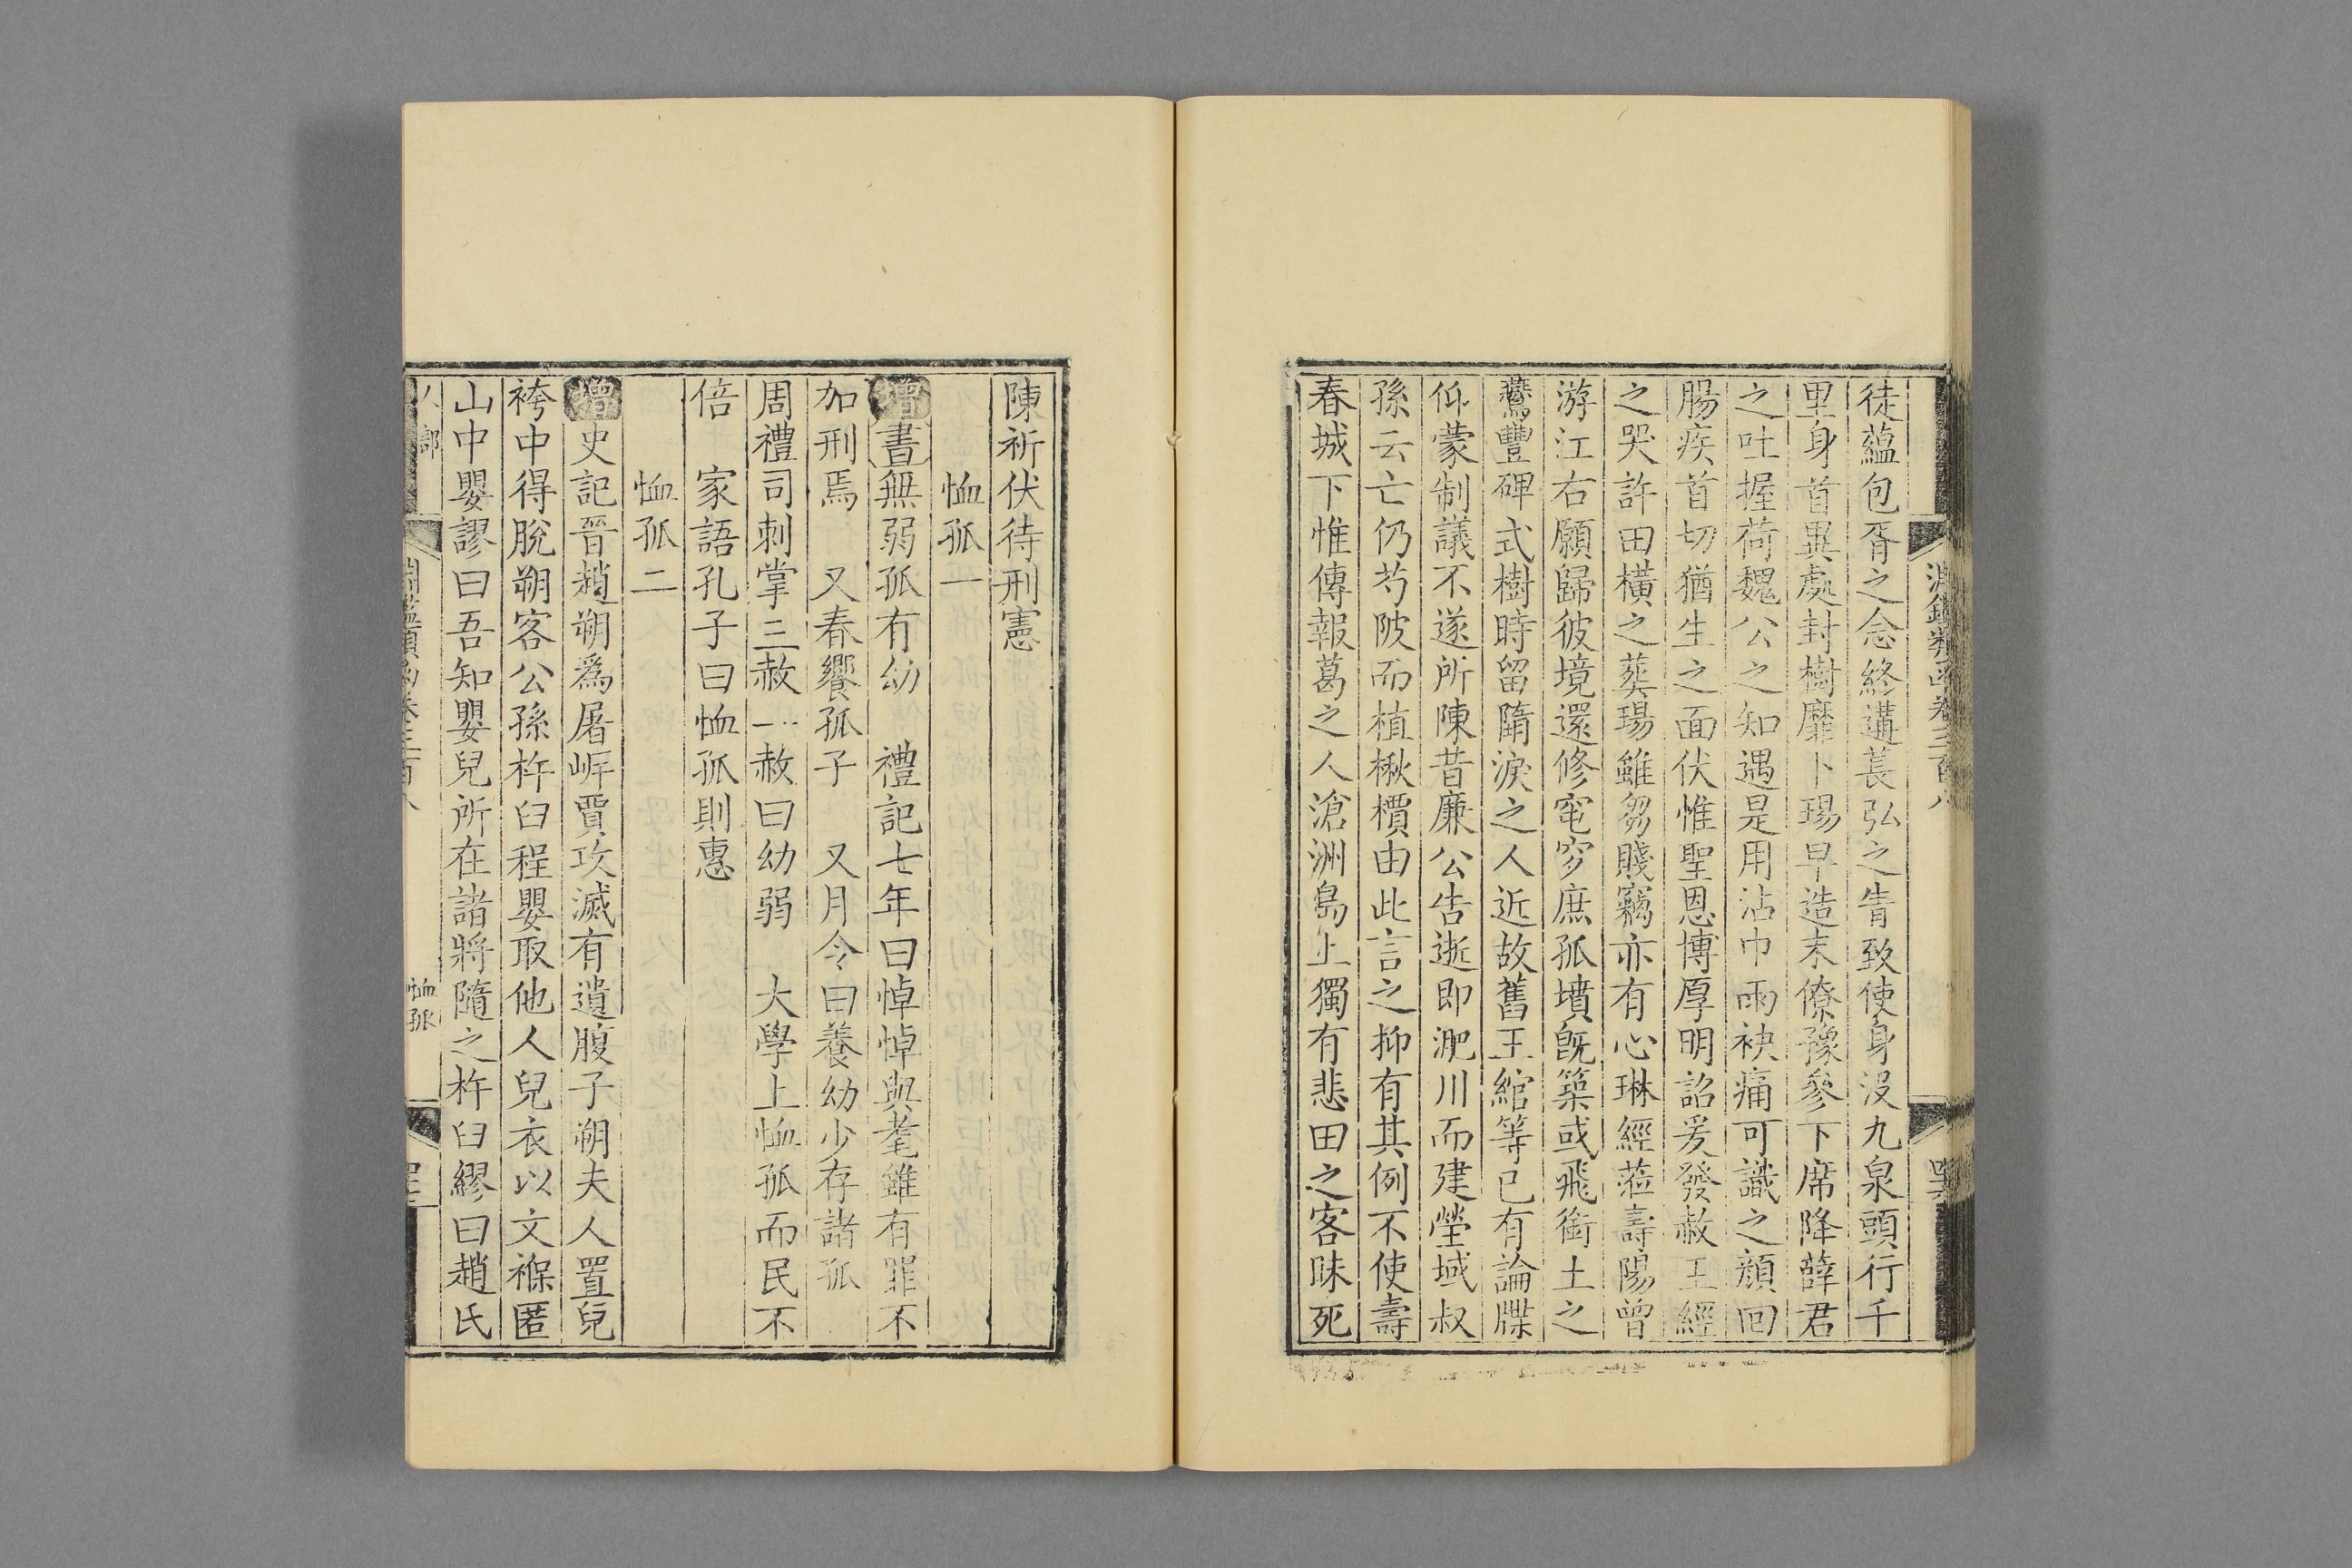 徒蘊包胥之念終遘萇弘之眚致使身沒九泉頭行千
里身首異處封樹靡卜瑒早造末僚豫參下席降薛君
之吐握荷魏公之知遇是用沾巾雨袂痛可識之顏回
腸疾首切猶生之面伏惟聖恩博厚明詔爰發赦王經
之哭許田橫之葬瑒雖芻賤竊亦有心琳經蒞壽陽曾
游江右願歸彼境還修窀穸庶孤墳旣築或飛銜土之
鷰豐碑式樹時留隋淚之人近故舊王綰等已有論牒
仰蒙制議不遂所陳昔廉公告逝即淝川而建塋域叔
孫云亡仍芍陂而植楸檟由此言之抑有其例不使壽
春城下惟傳報葛之人滄洲島上獨有悲田之客昧死
陳祈伏待刑憲
恤孤一
增書無弱孤有幼 禮記七年曰悼悼與耄雖有罪不
加刑焉 又春饗孤子 又月令曰養幼少存諸孤
周禮司刺掌三赦一赦曰幼弱 大學上恤孤而民不
倍 家語孔子曰恤孤則惠
恤孤二
增史記晉趙朔爲屠岸賈攻滅有遺腹子朔夫人置兒
袴中得脫朔客公孫杵臼程嬰取他人兒衣以文褓匿
山中嬰謬曰吾知嬰兒所在諸將隨之杵臼繆曰趙氏
恤孤